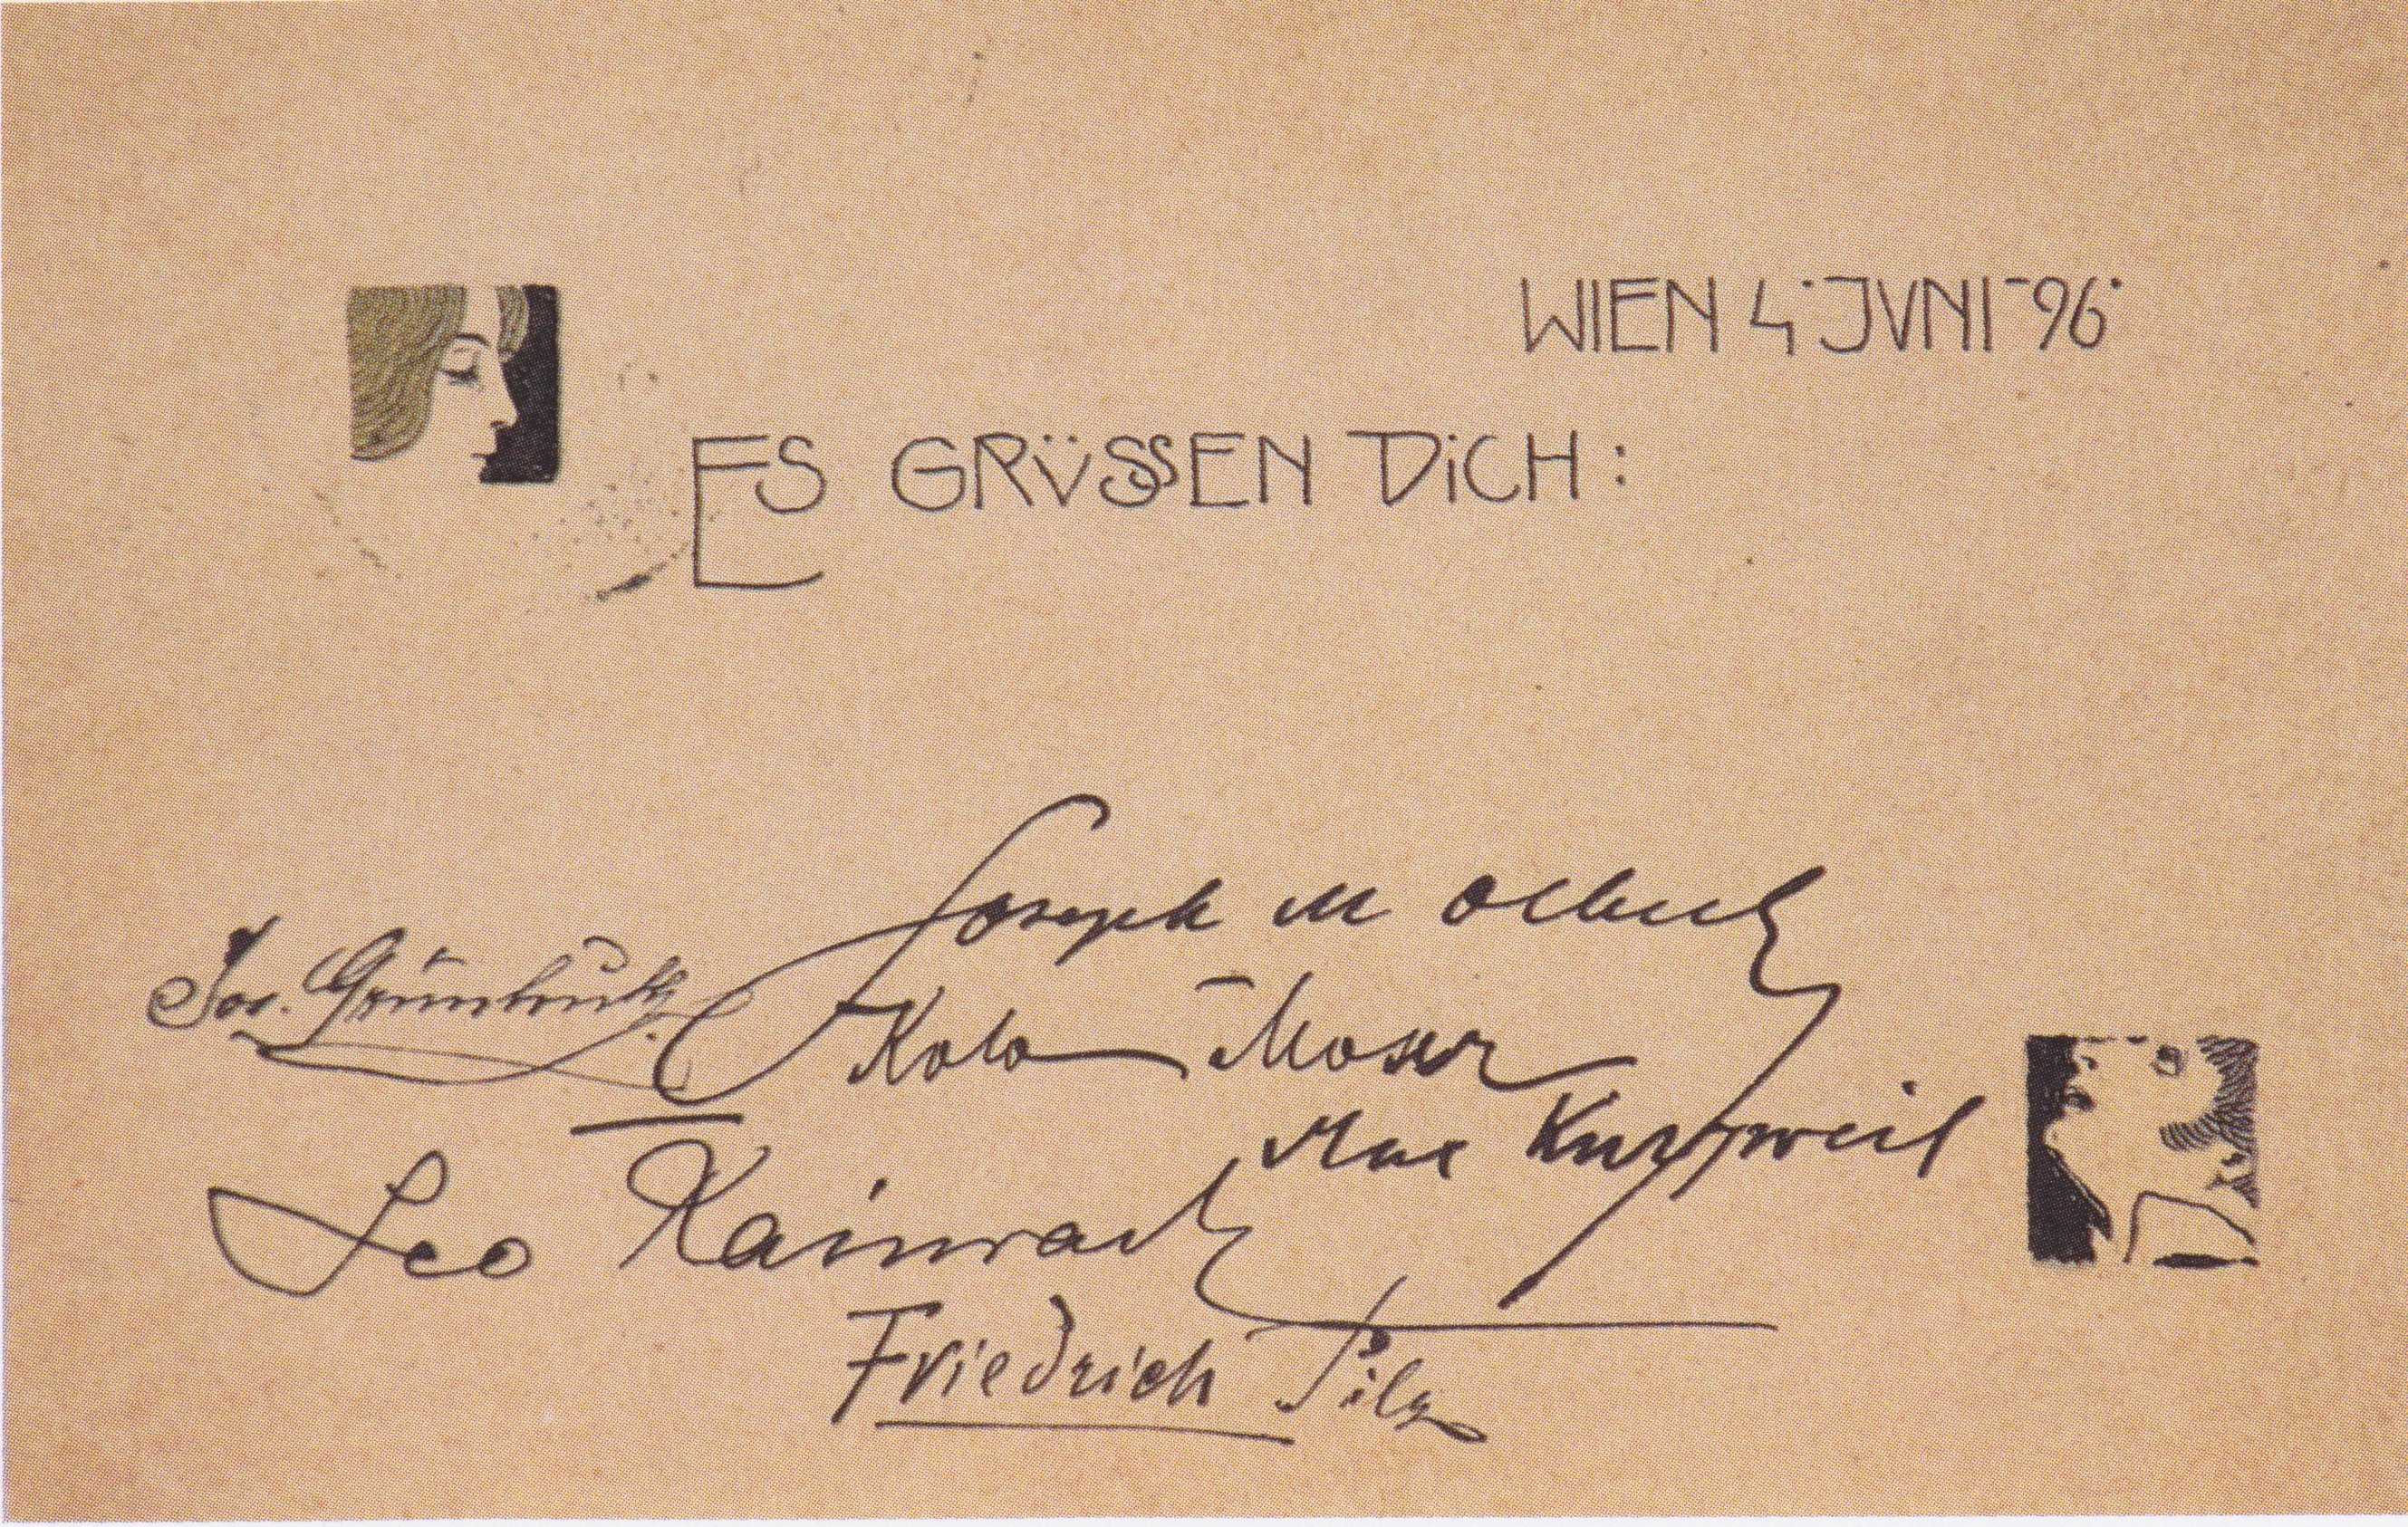 WIEN 4· JVNI -96·
ES GRÜSSEN DiCH:
Joseph M Olbrich
Jos.
Kolo Moser
Max Kurzweil
Leo Kainradl
Friedrich Pilz